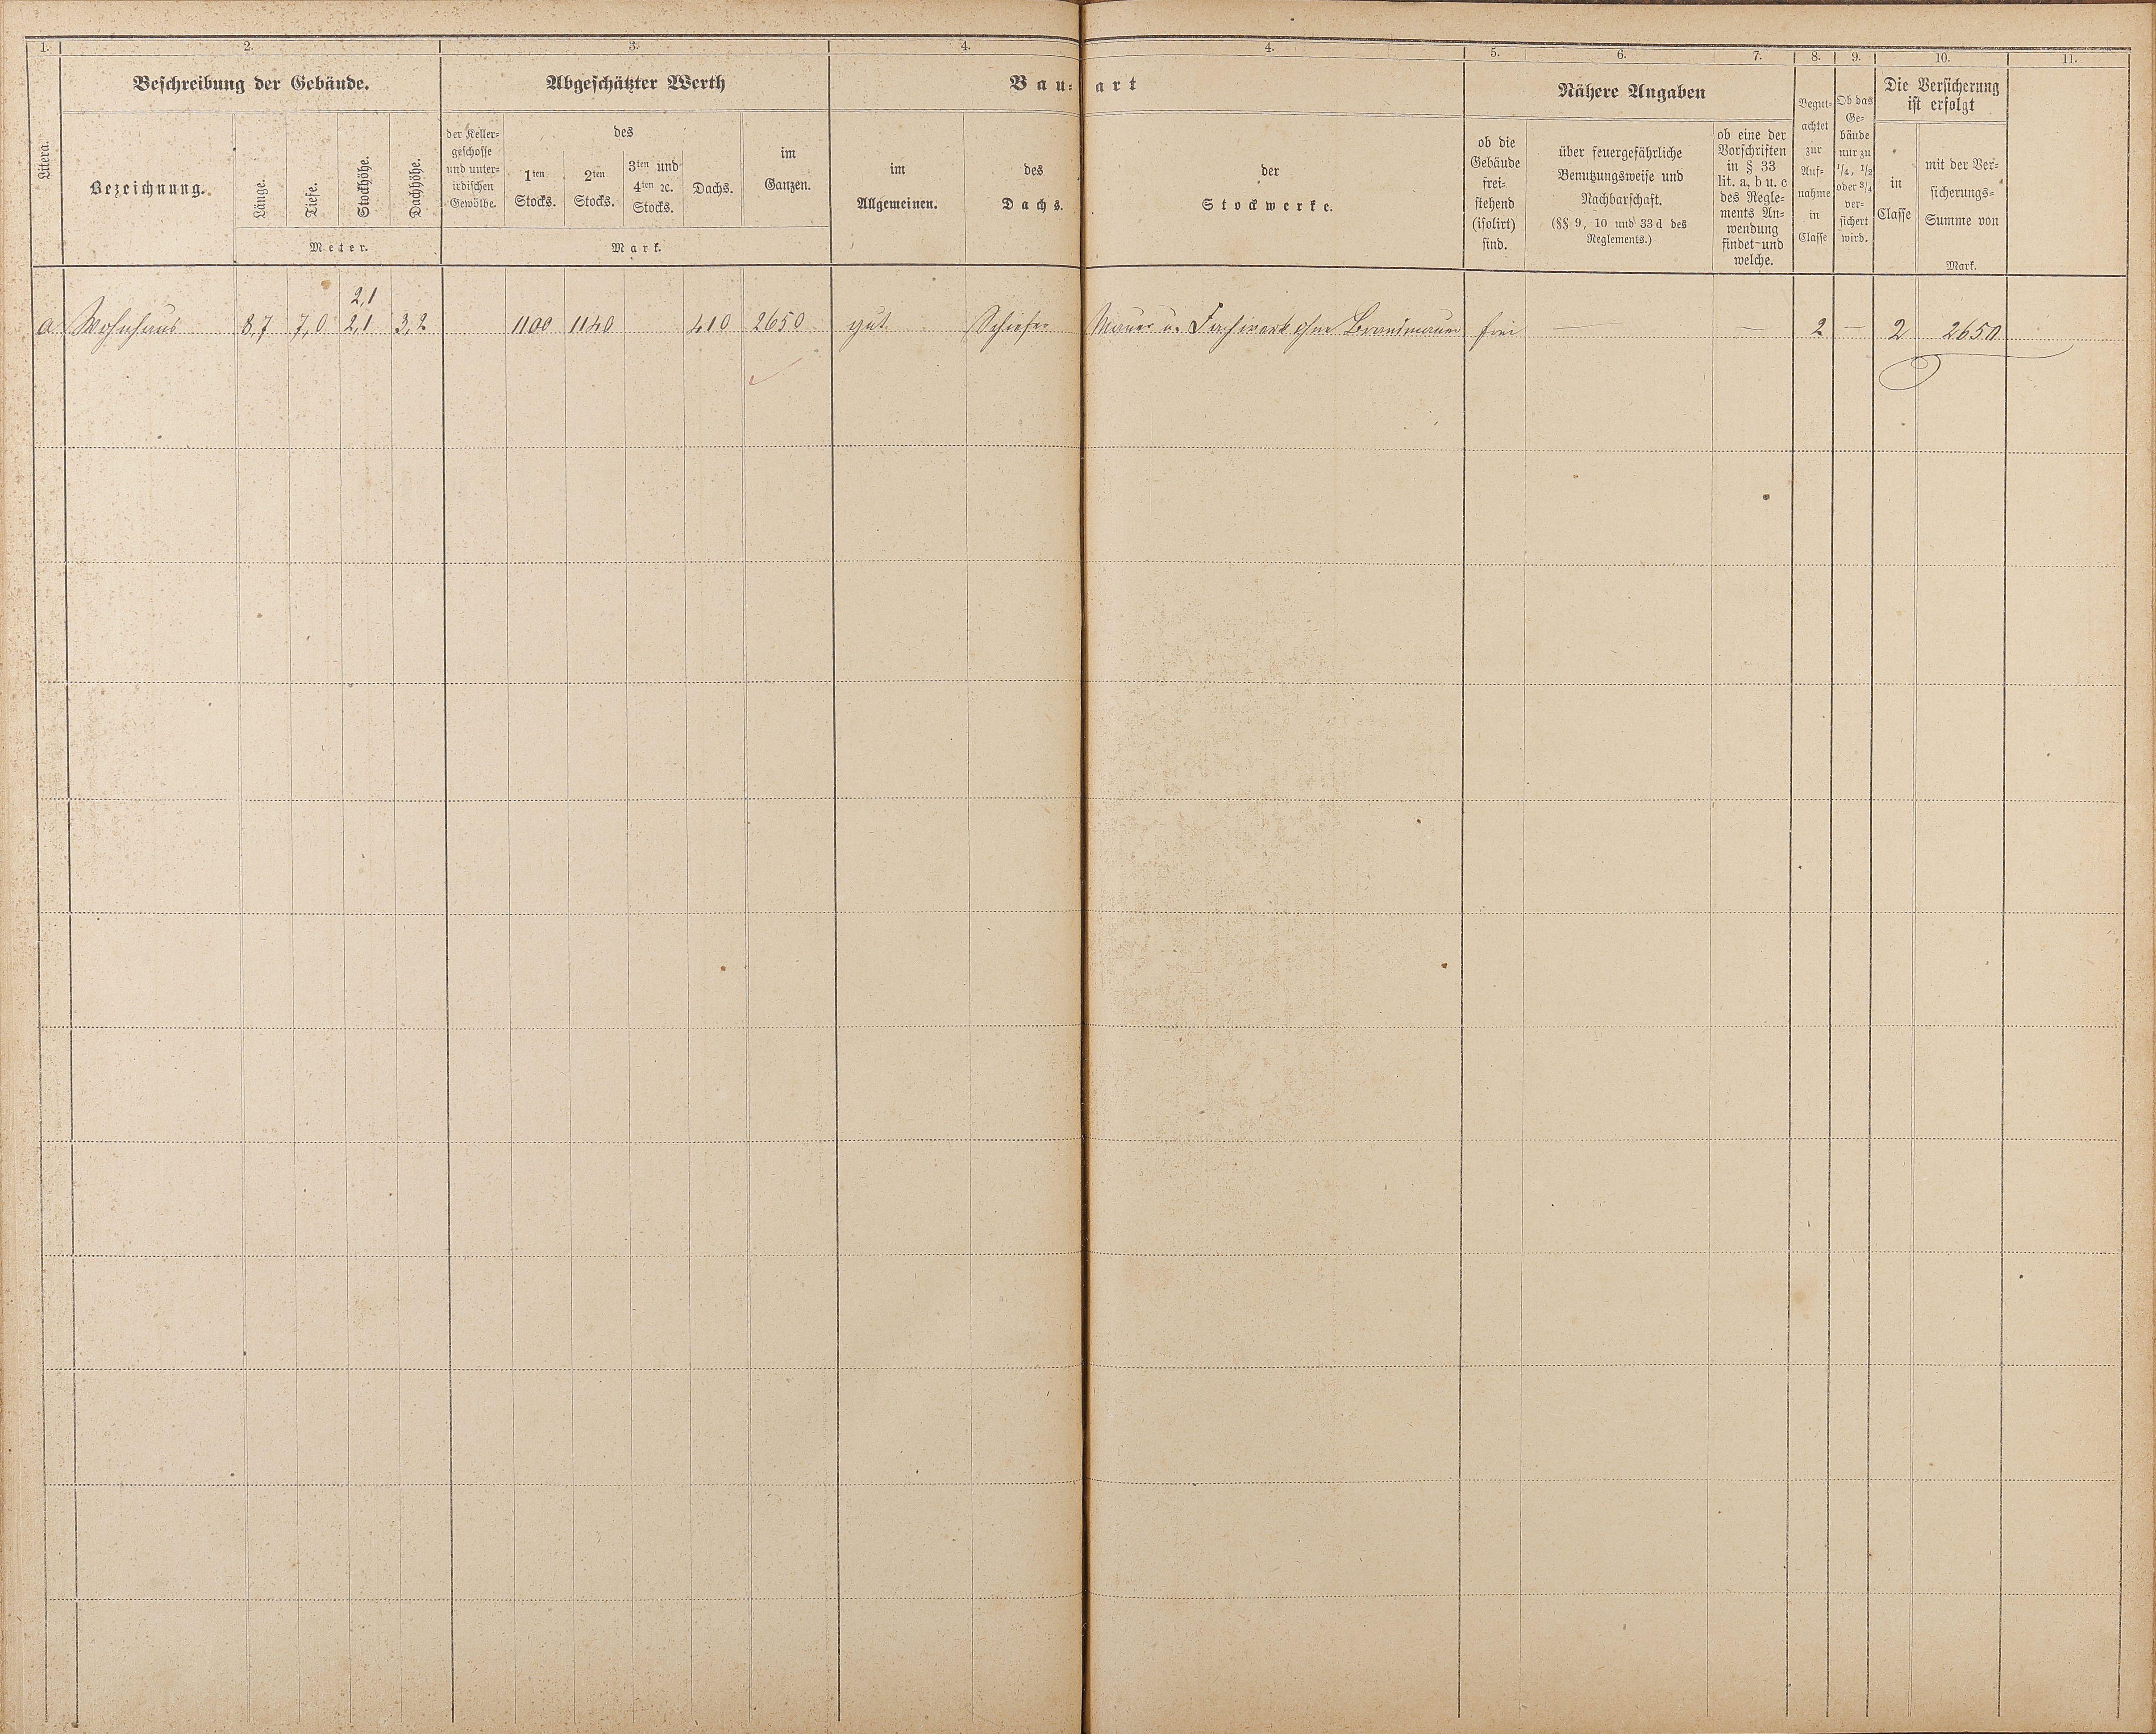 1. 2. 3. 4. 4. 5. 6. 7. 8. 9. 10. 11.
Littera.
Beschreibung der Gebäude.
Bezeichnung.
Länge.
Tiefe.
Stockhöhe.
Dachhöhe.
Meter.
Abgeschätzter Werth
der Keller-
geschosse
und unter-
irdischen
Gewölbe.
des
1ten
Stocks.
2ten
Stocks.
3ten und
4ten ꝛc.
Stocks.
Dachs.
im
Ganzen.
Mark.
Bau-art
im
Allgemeinen.
des
Dachs.
der
Stockwerke.
Nähere Angaben
ob die
Gebäude
frei-
stehend
(isolirt)
sind.
über feuergefährliche
Benutzungsweise und
Nachbarschaft.
(§§ 9, 10 und 33 d des
Reglements.)
ob eine der
Vorschriften
in § 33
lit. a, b u. c
des Regle-
ments An-
wendung
findet und
welche.
Begut-
achtet
zur
Auf-
nahme
in
Classe
Ob das
Ge-
bäude
nur zu
1/4, 1/2
oder 3/4
ver-
sichert
wird.
Die Versicherung
ist erfolgt
in
Classe
mit der Ver-
sicherungs-
Summe von
Mark.
2,1
a Wohnhaus 8,7 7,0 2,1 3,2 1100 1140 410 2650 gut Schiefer Mauer u. Fachwerk ohne Brandmauer frei — — 2 — 2 2650